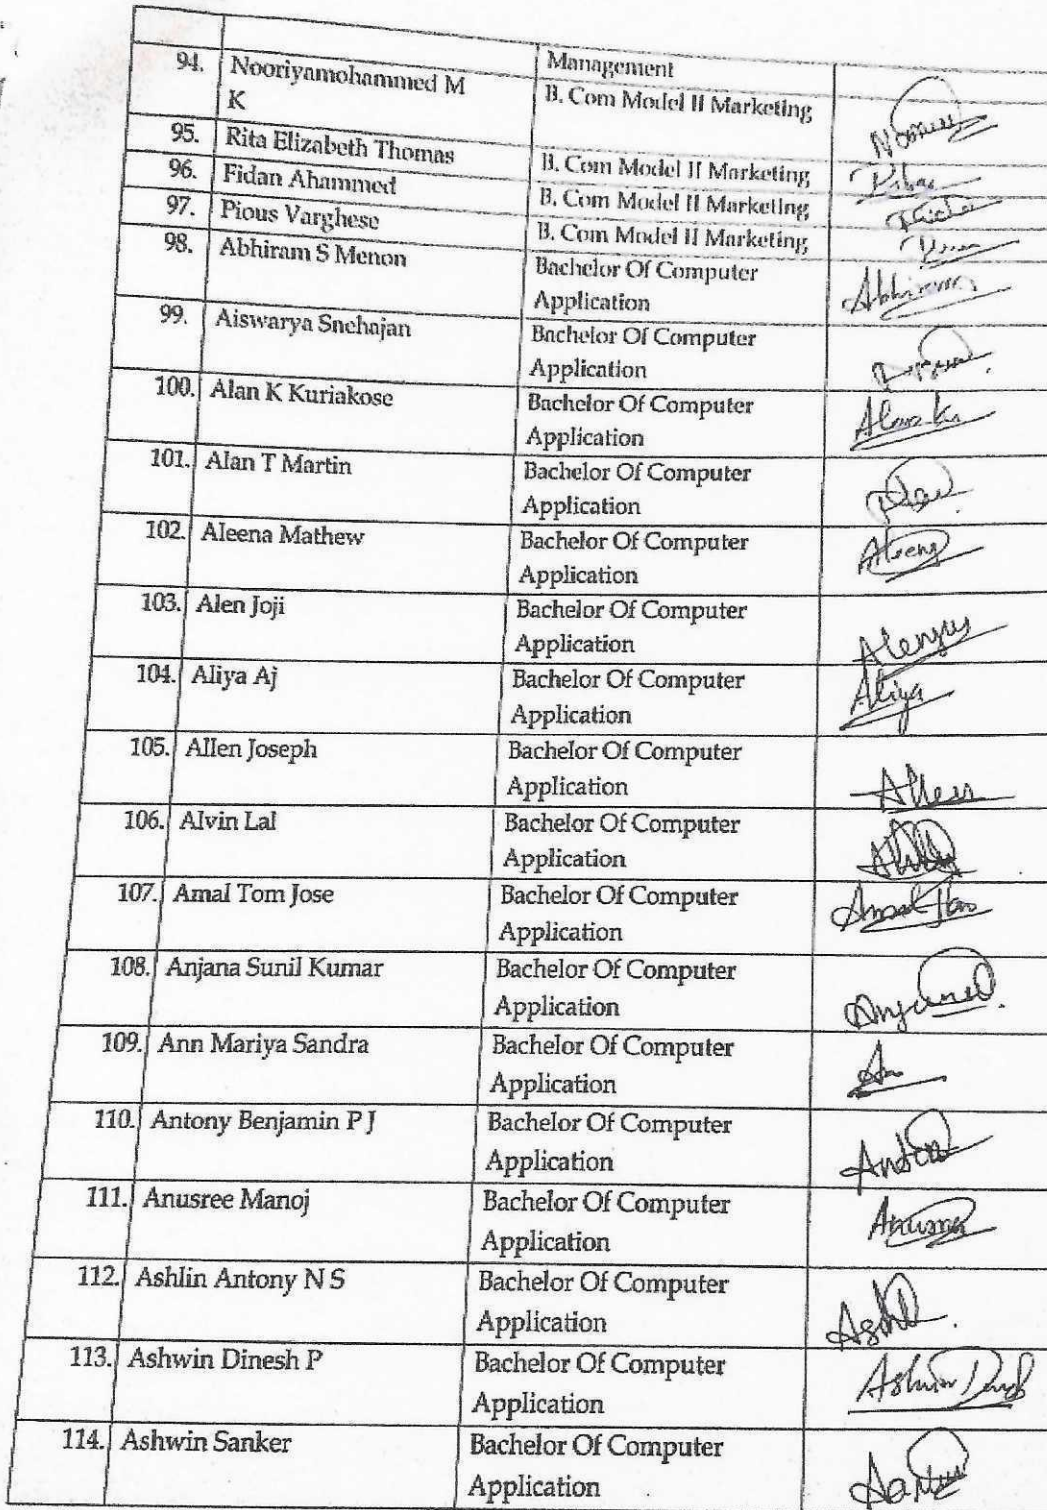 Management
94. Nooriyamohammed M B. Com Model II Marketing
K
95. Rita Elizabeth Thomas B. Com Model II Marketing
96. Fidan Ahammed B. Com Model II Marketing
97. Pious Varghese B. Com Model II Marketing
98. Abhiram S Menon Bachelor Of Computer Abhiram
Application
99. Aiswarya Snehajan Bachelor Of Computer
Application
100. Alan K Kuriakose Bachelor Of Computer
Application
101. Alan T Martin Bachelor Of Computer
Application
102. Aleena Mathew Bachelor Of Computer
Application
103. Alen Joji Bachelor Of Computer
Application
104. Aliya Aj Bachelor Of Computer Aliya
Application
105. Allen Joseph Bachelor Of Computer
Application Allen
106. Alvin Lal Bachelor Of Computer
Application
107. Amal Tom Jose Bachelor Of Computer
Application
108. Anjana Sunil Kumar Bachelor Of Computer
Application
109. Ann Mariya Sandra Bachelor Of Computer
Application
110. Antony Benjamin P J Bachelor Of Computer
Application
111. Anusree Manoj Bachelor Of Computer
Application
112. Ashlin Antony N S Bachelor Of Computer
Application
113. Ashwin Dinesh P Bachelor Of Computer
Application
114. Ashwin Sanker Bachelor Of Computer
Application